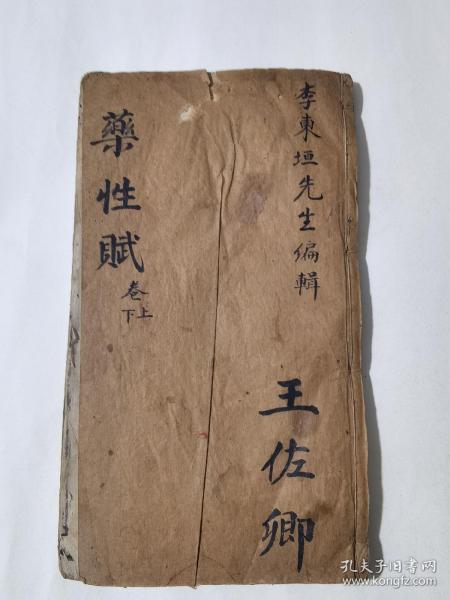 李東垣先生編輯
藥性賦
卷上下
王佐卿
孔夫子旧书网
www.kongfz.com